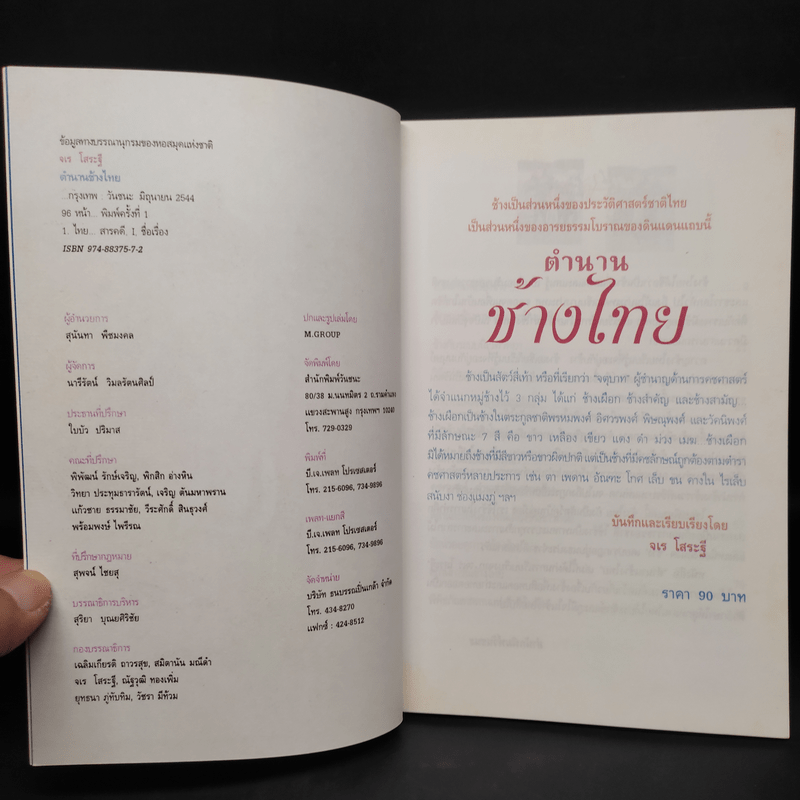 ข้อมูลทางบรรณานุกรมของหอสมุดแห่งชาติ
จเร โสระฐี
ตำนานช้างไทย
...กรุงเทพ : วันชนะ มิถุนายน 2544
96 หน้า... พิมพ์ครั้งที่ 1
1. ไทย... สารคดี. I. ชื่อเรื่อง
ISBN 974-88375-7-2
ผู้อำนวยการ
สุนันทา พืชมงคล
ผู้จัดการ
นารีรัตน์ วิมลรัตนศิลป์
ประธานที่ปรึกษา
ใบบัว ปริมาส
คณะที่ปรึกษา
พิพัฒน์ รักษ์เจริญ, พิกสิก อ่างหิน
วิทยา ประทุมธารารัตน์, เจริญ ตันมหาพราน
แก้วชาย ธรรมาชัย, วีระศักดิ์ สินธุวงศ์
พร้อมพงษ์ ไพรีรณ
ที่ปรึกษากฎหมาย
สุพจน์ ไชยสุ
บรรณาธิการบริหาร
สุริยา บุณยศิริชัย
กองบรรณาธิการ
เฉลิมเกียรติ ถาวรสุข, สมิตานัน มณีดำ
จเร โสระฐี, ณัฐวุฒิ ทองเพิ่ม
ยุทธนา ภู่ทับทิม, วัชรา มีท้วม
ปกและรูปเล่มโดย
M.GROUP
จัดพิมพ์โดย
สำนักพิมพ์วันชนะ
80/38 ม.นนทมิตร 2 ถ.รามคำแหง
แขวงสะพานสูง กรุงเทพฯ 10240
โทร. 729-0329
พิมพ์ที่
บี.เจ.เพลท โปรเซสเตอร์
โทร. 215-6096, 734-9896
เพลท-แยกสี
บี.เจ.เพลท โปรเซสเตอร์
โทร. 215-6096, 734-9896
จัดจำหน่าย
บริษัท ธนบรรณปิ่นเกล้า จำกัด
โทร. 434-8270
แฟกซ์ : 424-8512
ช้างเป็นส่วนหนึ่งของประวัติศาสตร์ชาติไทย
เป็นส่วนหนึ่งของอารยธรรมโบราณของดินแดนแถบนี้
ตำนาน
ช้างไทย
ช้างเป็นสัตว์สี่เท้า หรือที่เรียกว่า "จตุบาท" ผู้ชำนาญด้านการคชศาสตร์
ได้จำแนกหมู่ช้างไว้ 3 กลุ่ม ได้แก่ ช้างเผือก ช้างสำคัญ และช้างสามัญ...
ช้างเผือกเป็นช้างในตระกูลชาติพรหมพงศ์ อิศวรพงศ์ พิษณุพงศ์ และวัคนิพงศ์
ที่มีลักษณะ 7 สี คือ ขาว เหลือง เขียว แดง ดำ ม่วง เมฆ ช้างเผือก
มิได้หมายถึงช้างที่มีสีขาวหรือขาวผิดปกติ แต่เป็นช้างที่มีคชลักษณ์ถูกต้องตามตำรา
คชศาสตร์หลายประการ เช่น ตา เพดาน อัณฑะ โกศ เล็บ ขน คางใน ไรเล็บ
สนับงา ช่องแมงภู่ ฯลฯ
บันทึกและเรียบเรียงโดย
จเร โสระฐี
ราคา 90 บาท